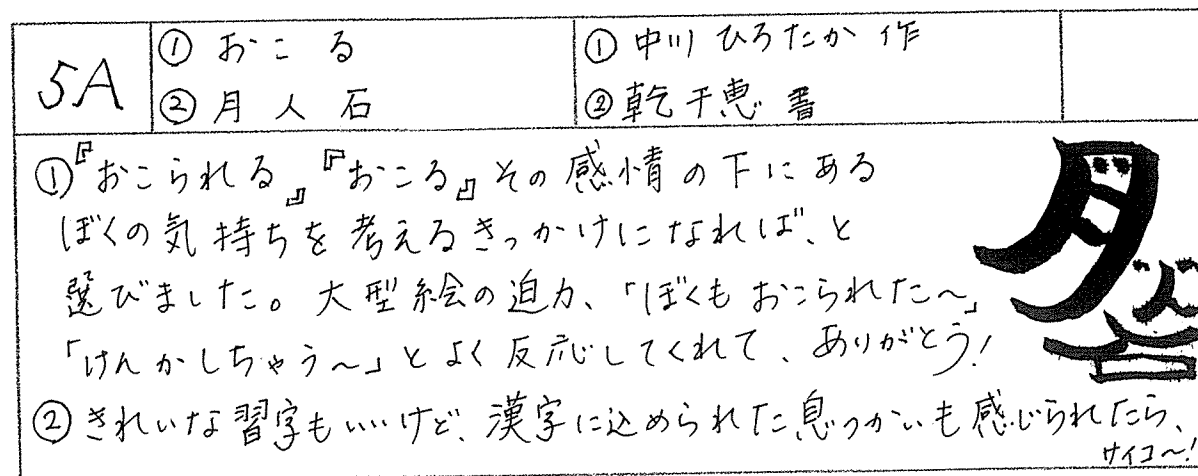 5A
① おこる
② 月人石
① 中川ひろたか 作
② 乾千恵 書
①『おこられる』『おこる』その感情の下にある
ぼくの気持ちを考えるきっかけになれば、と
選びました。大型絵の迫力、「ぼくもおこられた〜」
「けんかしちゃう〜」とよく反応してくれて、ありがとう!
② きれいな習字もいいけど、漢字に込められた息づかいも感じられたら、
サイコ〜!